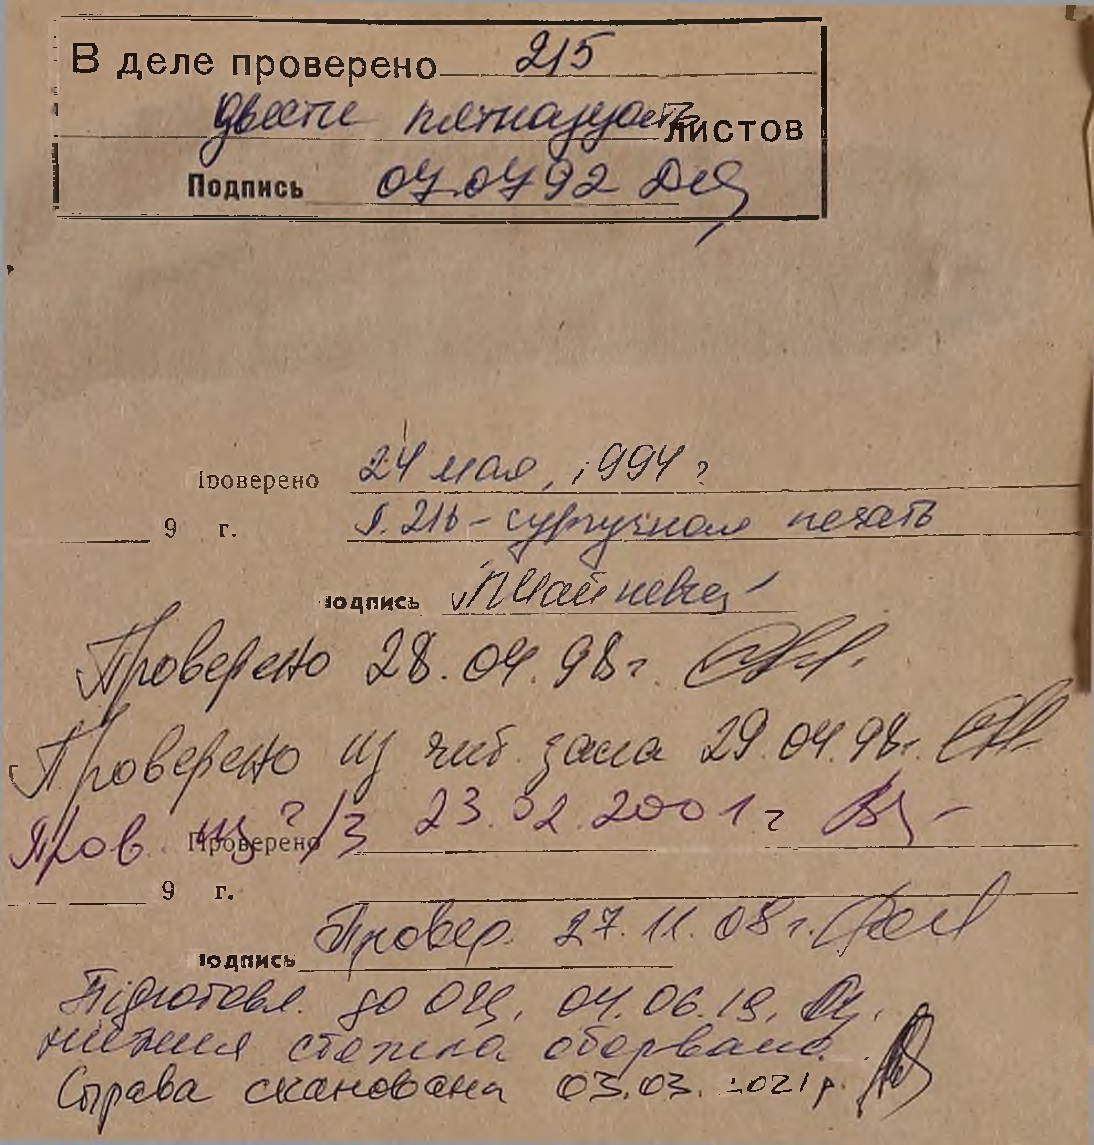 В деле проверено 215
двести пятнадцать листов
Подпись 07.07.92
Проверено 24 мая, 1994 г
9 г. л. 216 - сургучная печать
подпись
Проверено 28.04.98г.
Проверено из чит. зала 29.04.98г.
Пров. из ч/з 23.02.2001г
Проверено
9 г.
Провер. 27.11.08г.
подпись
Підготовл. до ОЦ. 04.06.19.
нижня стяжка обірвана
Справа сканована 03.03.2021р.